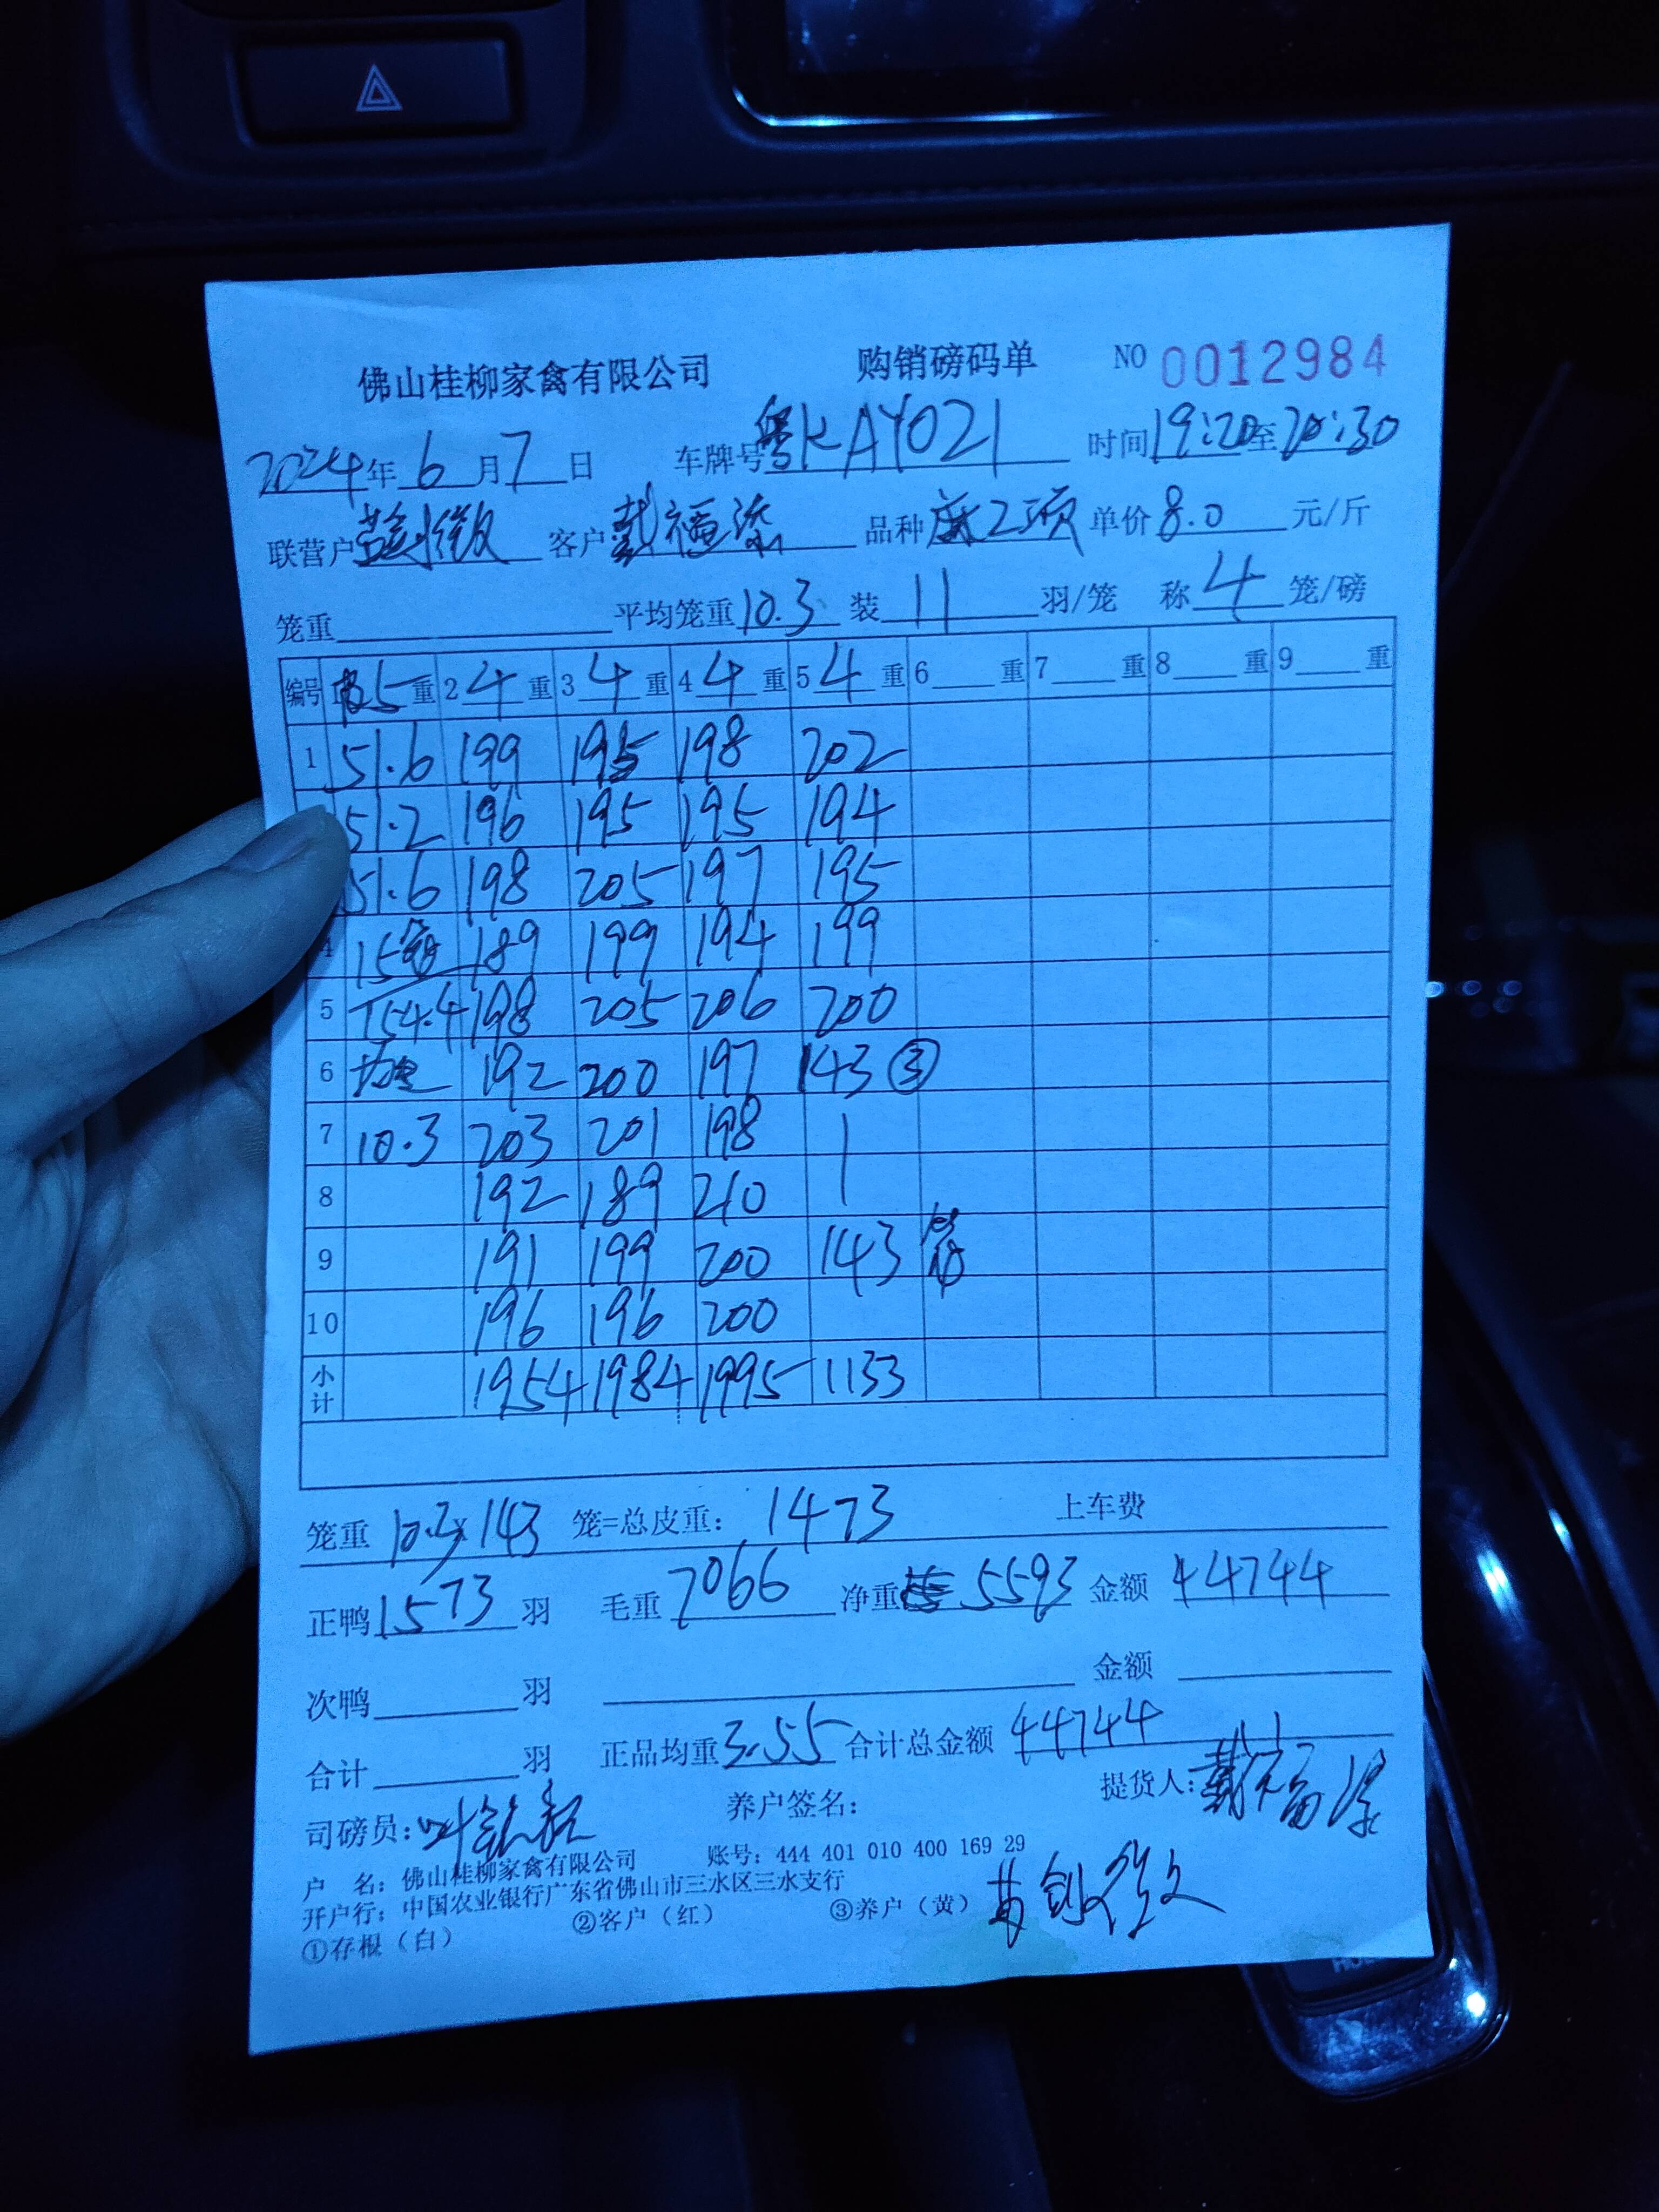 佛山桂柳家禽有限公司 购销磅码单 NO 0012984
2024年6月7日 车牌号粤KAY021 时间19:20至20:30
联营户 客户戴福添 品种麻工项 单价8.0元/斤
笼重 平均笼重10.3 装11羽/笼 称4笼/磅
编号 5重 2 4重 3 4重 4 4重 5 4重 6 重 7 重 8 重 9 重
1 51.6 199 195 198 202
51.2 196 195 195 194
51.6 198 205 197 195
4 15 189 199 194 199
5 154.4 198 205 206 200
6 均重 192 200 197 143 ③
7 10.3 203 201 198
8 192 189 210
9 191 199 200 143
10 196 196 200
小计 1954 1984 1995 1133
笼重 10.3×143 笼=总皮重: 1473 上车费
正鸭1573羽 毛重7066 净重5593 金额44744
次鸭 羽 金额
合计 羽 正品均重3.55 合计总金额44744
司磅员: 养户签名: 提货人:戴福添
户 名: 佛山桂柳家禽有限公司 账号: 444 401 010 400 169 29
开户行: 中国农业银行广东省佛山市三水区三水支行
①存根(白) ②客户(红) ③养户(黄)